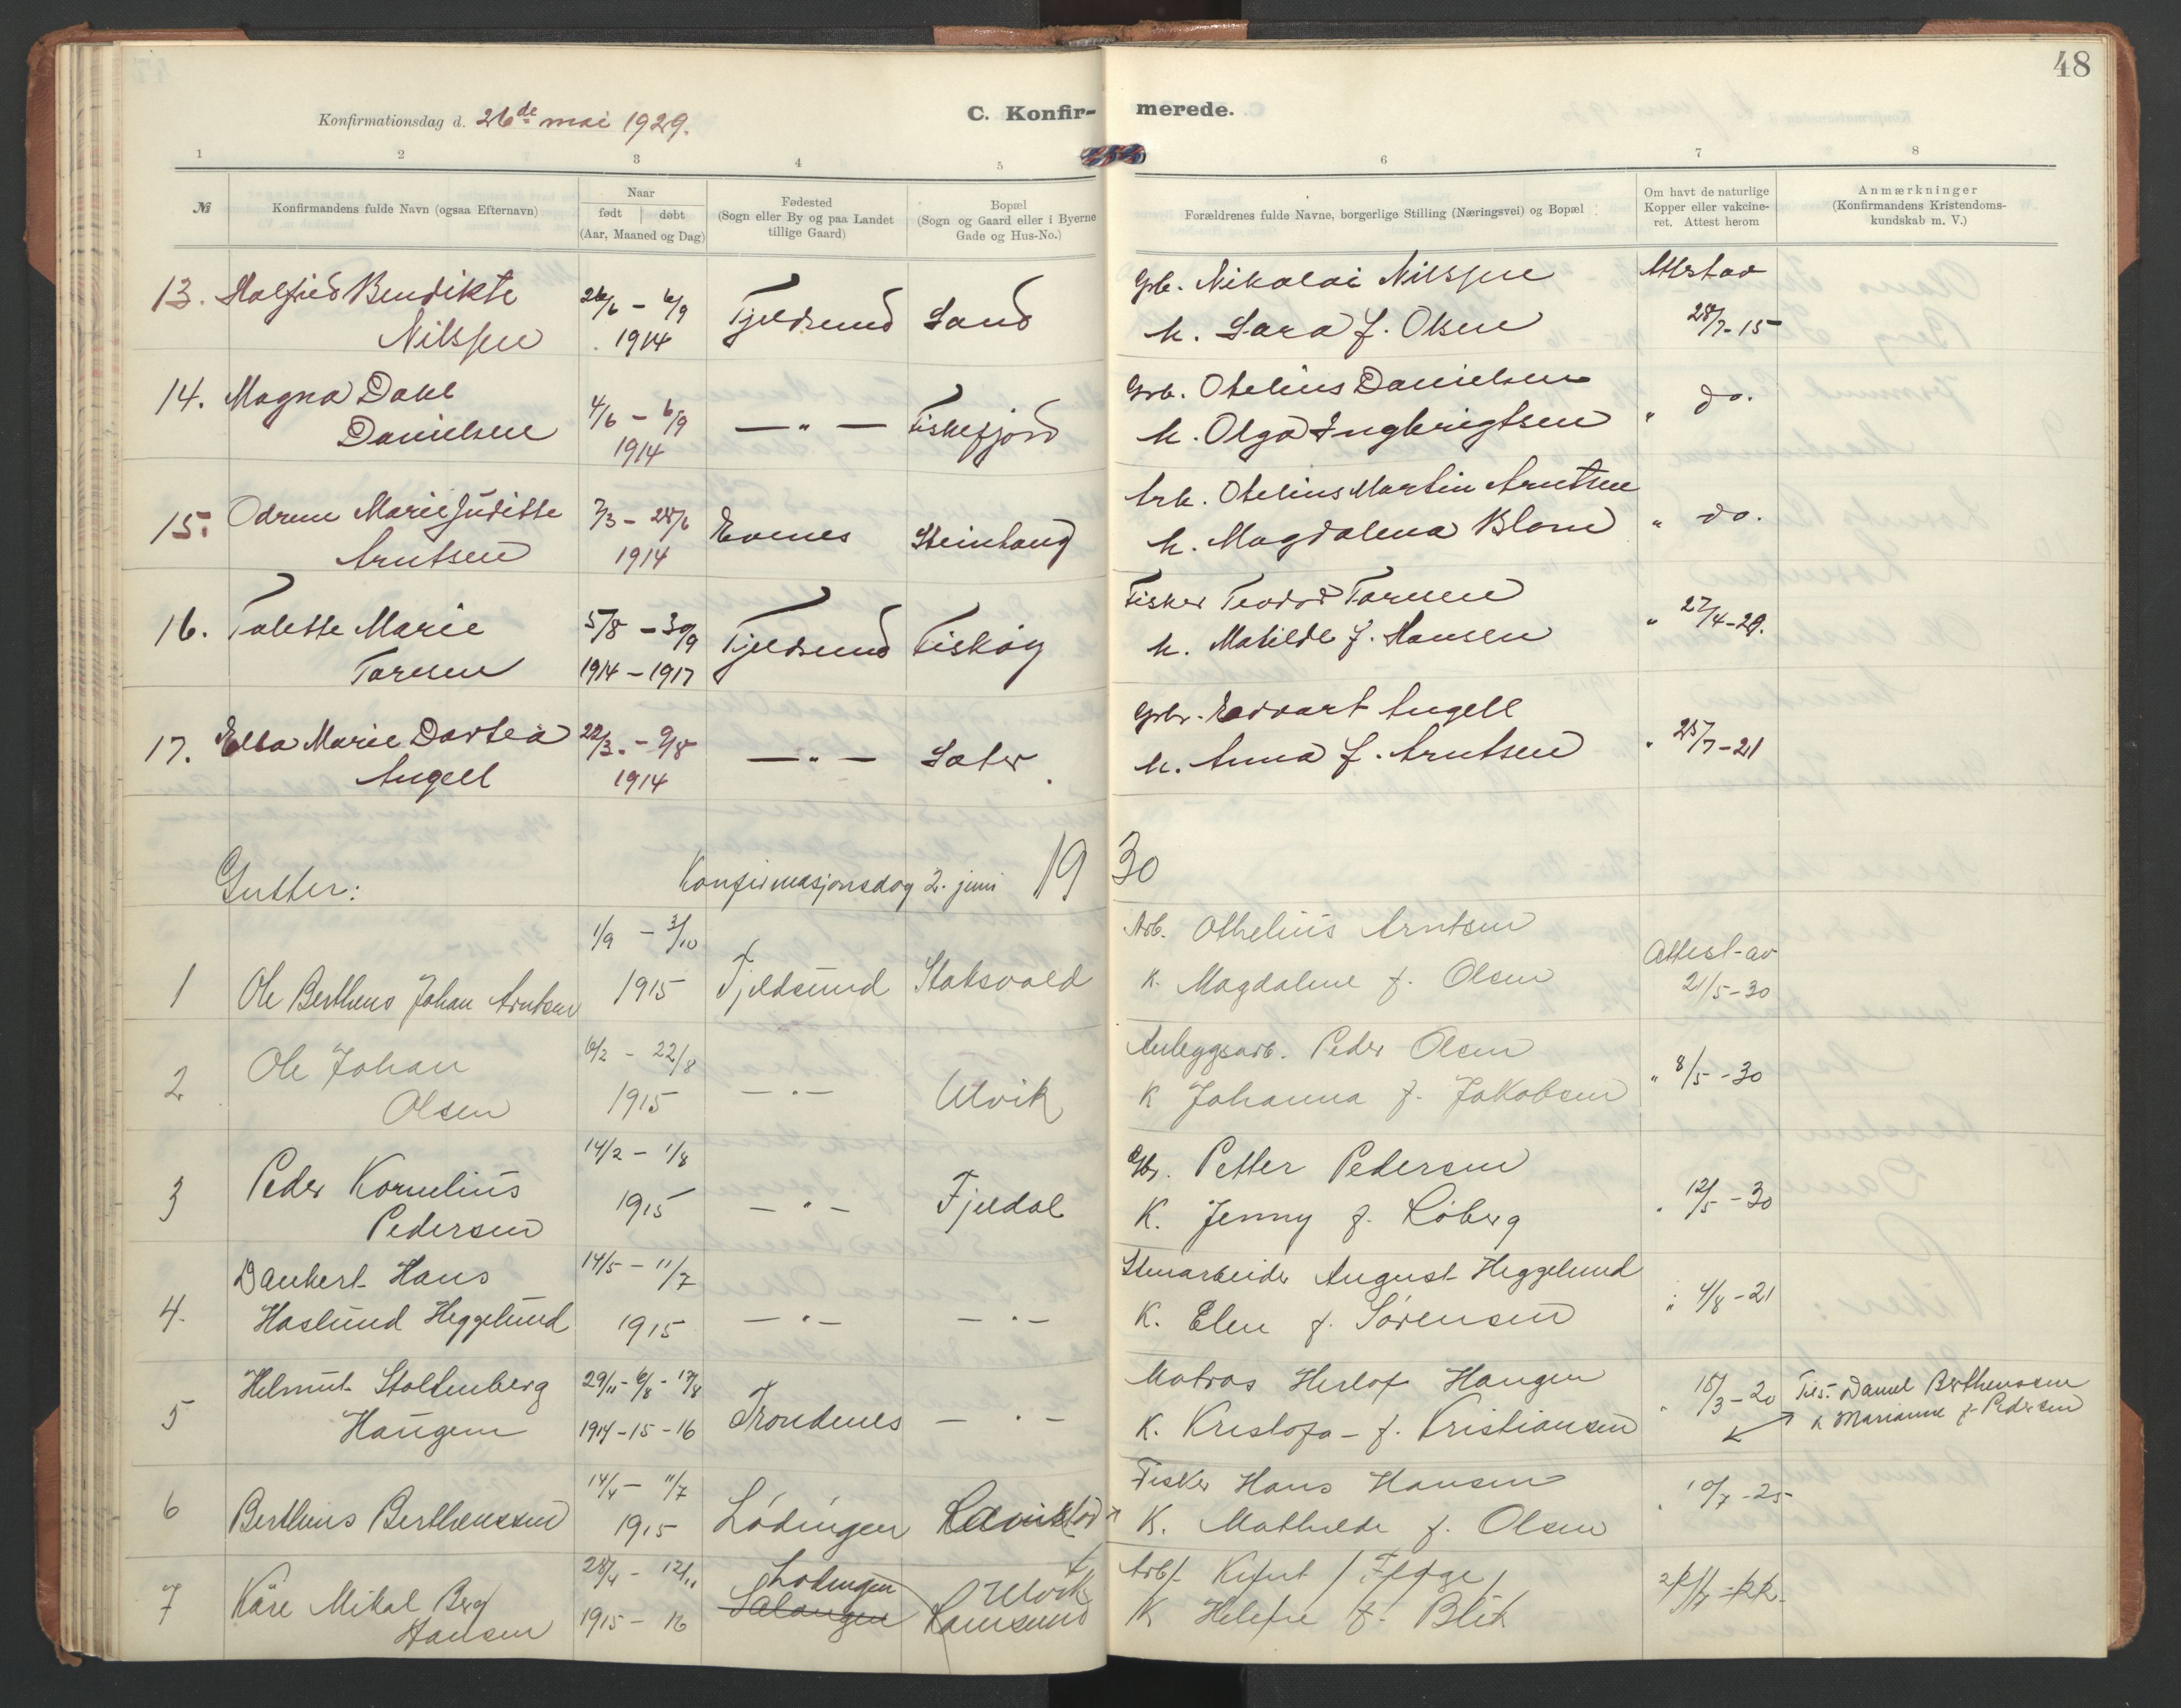 48
Konfirmationsdag d. 26de mai 1929.
C. Konfir- merede.
1 2 3 4 5 6 7 8
№
Konfirmandens fulde Navn (ogsaa Efternavn)
Naar
født døbt
(Aar, Maaned og Dag)
Fødested
(Sogn eller By og paa Landet
tillige Gaard)
Bopæl
(Sogn og Gaard eller i Byerne
Gade og Hus-No.)
Forældrenes fulde Navne, borgerlige Stilling (Næringsvei) og Bopæl
Om havt de naturlige
Kopper eller vakcine-
ret. Attest herom
Anmærkninger
(Konfirmandens Kristendoms-
kundskab m. V.)
13. Halfrid Bendikte 26/6 - 6/9 Fjeldsund Sand Gbr. Nikolai Nilssen Attst av
Nilssen 1914 h. Sara f. Olsen 28/7-15
14. Magna Dahl 4/6 - 6/9 — " — Fiskefjord Grb. Otelius Danielsen " do.
Danielsen 1914 h. Olga Ingbrigtsen
15. Marie Juditte 7/3 - 28/6 Evenes Steinhaug Arb. Otelius Martin Arntsen " do.
Arntsen 1914 h. Magdalena Blom
16. Talette Marie 5/8 - 30/9 Fjeldsund Fiskøy Fisker Teodor Toresen " 27/4-29.
Toresen 1914 - 1917 h. Matilde f. Hansen
17. Ella Marie Dortea 22/3 - 9/8 — " — Sæter Edvart Angell " 25/7-21
Angell 1914 h. Anna f. Arntsen
Gutter: Konfirmasjonsdag 2. juni 1930
1 Ole Bertheus Johan Arntsen 1/9 - 3/10 1915 Fjeldsund Stoksvold Arb. Othelius Arntsen Attest av
K. Magdalene f. Olsen 21/5-30
2 Ole Johan 6/2 - 22/8 — " — Ulvik Anleggsarb. Peder Olsen " 8/5-30
Olsen 1915 K Johanna f. Jakobsen
3 Peder Kornelius 14/2 - 1/8 — " — Fjeldal Gbr. Petter Pedersen " 12/5-30
Pedersen 1915 K. Jenny f. Løberg
4. Dankert Hans 14/5 - 11/7 — " — — " — Stenarbeider August Heggelund " 4/8-21
Haslund Heggelund 1915 K. Elen f. Sørensen
5 Helmut Stoltenberg 29/11 - 6/8 - 17/8 Trondenes — " — Matros Herlof Haugen " 15/3-20 Daniel Berthenssen
Haugen 1914-15-16 K. Kristofa f. Kristiansen K Marianne f. Pedersen
6 Bertheus Berthenssen 14/4 - 11/7 1915 Lødingen Fisker Hans Hansen " 10/7-25
K. Mathilde f. Olsen
7 Kåre Mikal Berg 28/4 - 12/11 Lødingen Ulvik Arb. Knut
Hansen 1915 - 16 Salangen Ramsund K Helene f. Blik